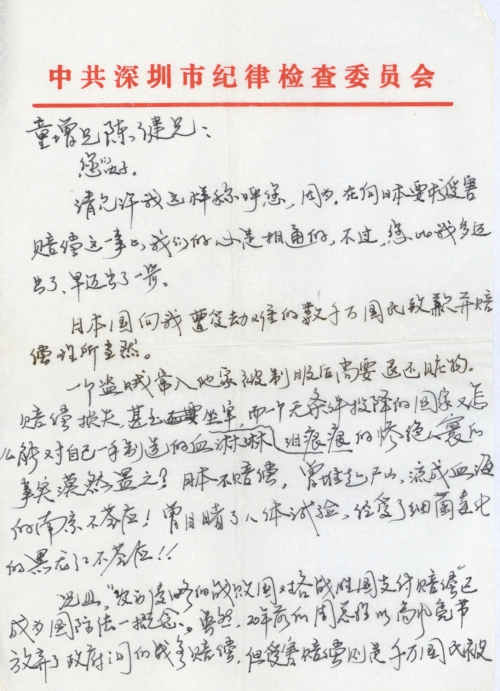 中共深圳市纪律检查委员会
童增兄陈健兄：
您好。
请允许我这样称呼您，因为，在向日本要求受害
赔偿这一事上，我们的心是相通的，不过，您比我多迈
出了、早迈出了一步。
日本国向我遭受劫难的数千万国民致歉并赔
偿理所当然。
一个盗贼窜入他家被制服后尚要退还赃物，
赔偿损失，甚至要坐牢，而一个无条件投降的国家又怎
么能对自己一手制造的血淋淋泪痕痕的惨绝人寰的
事实漠然置之？日本不赔偿，曾堆起尸山，流成血海
的南京不答应！曾目睹了人体试验，经受了细菌毒化
的黑龙江不答应！！
况且，“发动侵略的战败国对各战胜国支付赔偿”已
成为国际法一概念。虽然，20年前的周总理以高风亮节
放弃了政府间的战争赔偿，但受害赔偿则是千万国民被